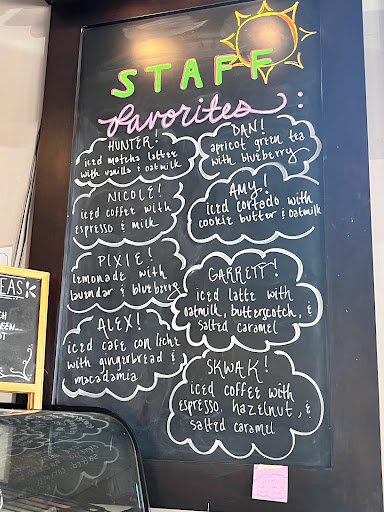 STAFF
Favorites:
HUNTER!
iced matcha latte
with vanilla & oatmilk
DAN!
apricot green tea
with blueberry
NICOLE!
iced coffee with
espresso & milk
AMY!
iced cortado with
cookie butter & oatmilk
PIXIE!
lemonade with
lavendar & blueberry
GARRETT!
iced latte with
oatmilk, butterscotch, &
salted caramel
ALEX!
iced cafe con leche
with gingerbread &
macadamia
SKWAK!
iced coffee with
espresso, hazelnut, &
salted caramel
EAS